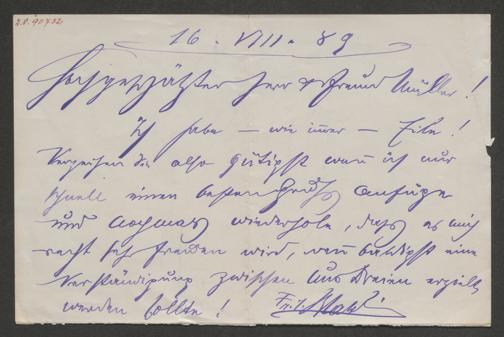 16. VIII. 89
Hochgeschätzter Herr & Freund Müller!
Ich habe – wie immer – Eile!
Verzeihen Sie also gütigst wenn ich nur
schnell einen besten Gruß anfüge
und nochmals wiederhole, dass es mich
recht sehr freuen wird, wenn baldigst eine
Verständigung zwischen uns Dreien erzielt
werden sollte!